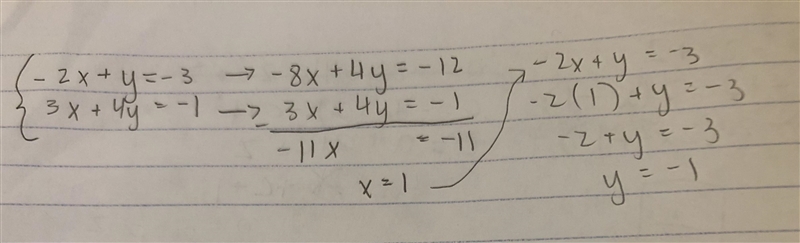 -2x+y=-3 → -8x+4y=-12
3x+4y=-1 → 3x+4y=-1
-
-11x =-11
x=1
-2x+y=-3
-2(1)+y=-3
-2+y=-3
y=-1